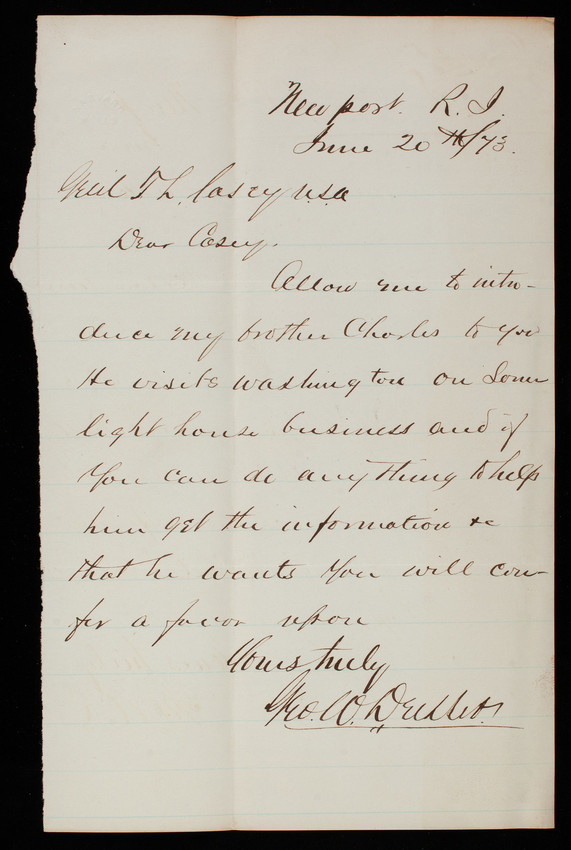 Newport. R. I.
June 20th/73.
Genl T L. Casey U.S.A
Dear Casey.
Allow me to intro-
duce my brother Charles to you
He visits Washington on Some
light house business and if
You can do anything to help
him get the information &c
that he wants You will con-
fer a favor upon
Yours truly
Geo. W.